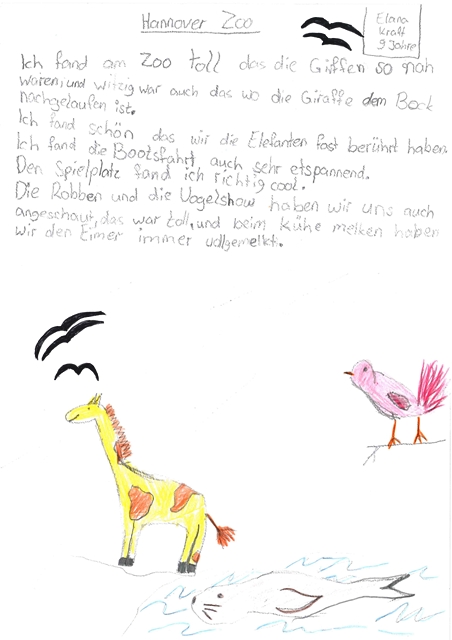 Hannover Zoo
Elana
Kraft
9 Jahre
Ich fand am Zoo toll das die Giffen so nah
waren, und witzig war auch das wo die Giraffe dem Bock
nachgelaufen ist.
Ich fand schön das wir die Elefanten fast berührt haben.
Ich fand die Bootsfahrt, auch sehr etspannend.
Den Spielplatz fand ich richtig cool.
Die Robben und die Vogelshow haben wir uns auch
angeschaut, das war toll, und beim kühe melken haben
wir den Eimer immer vollgemelkt.